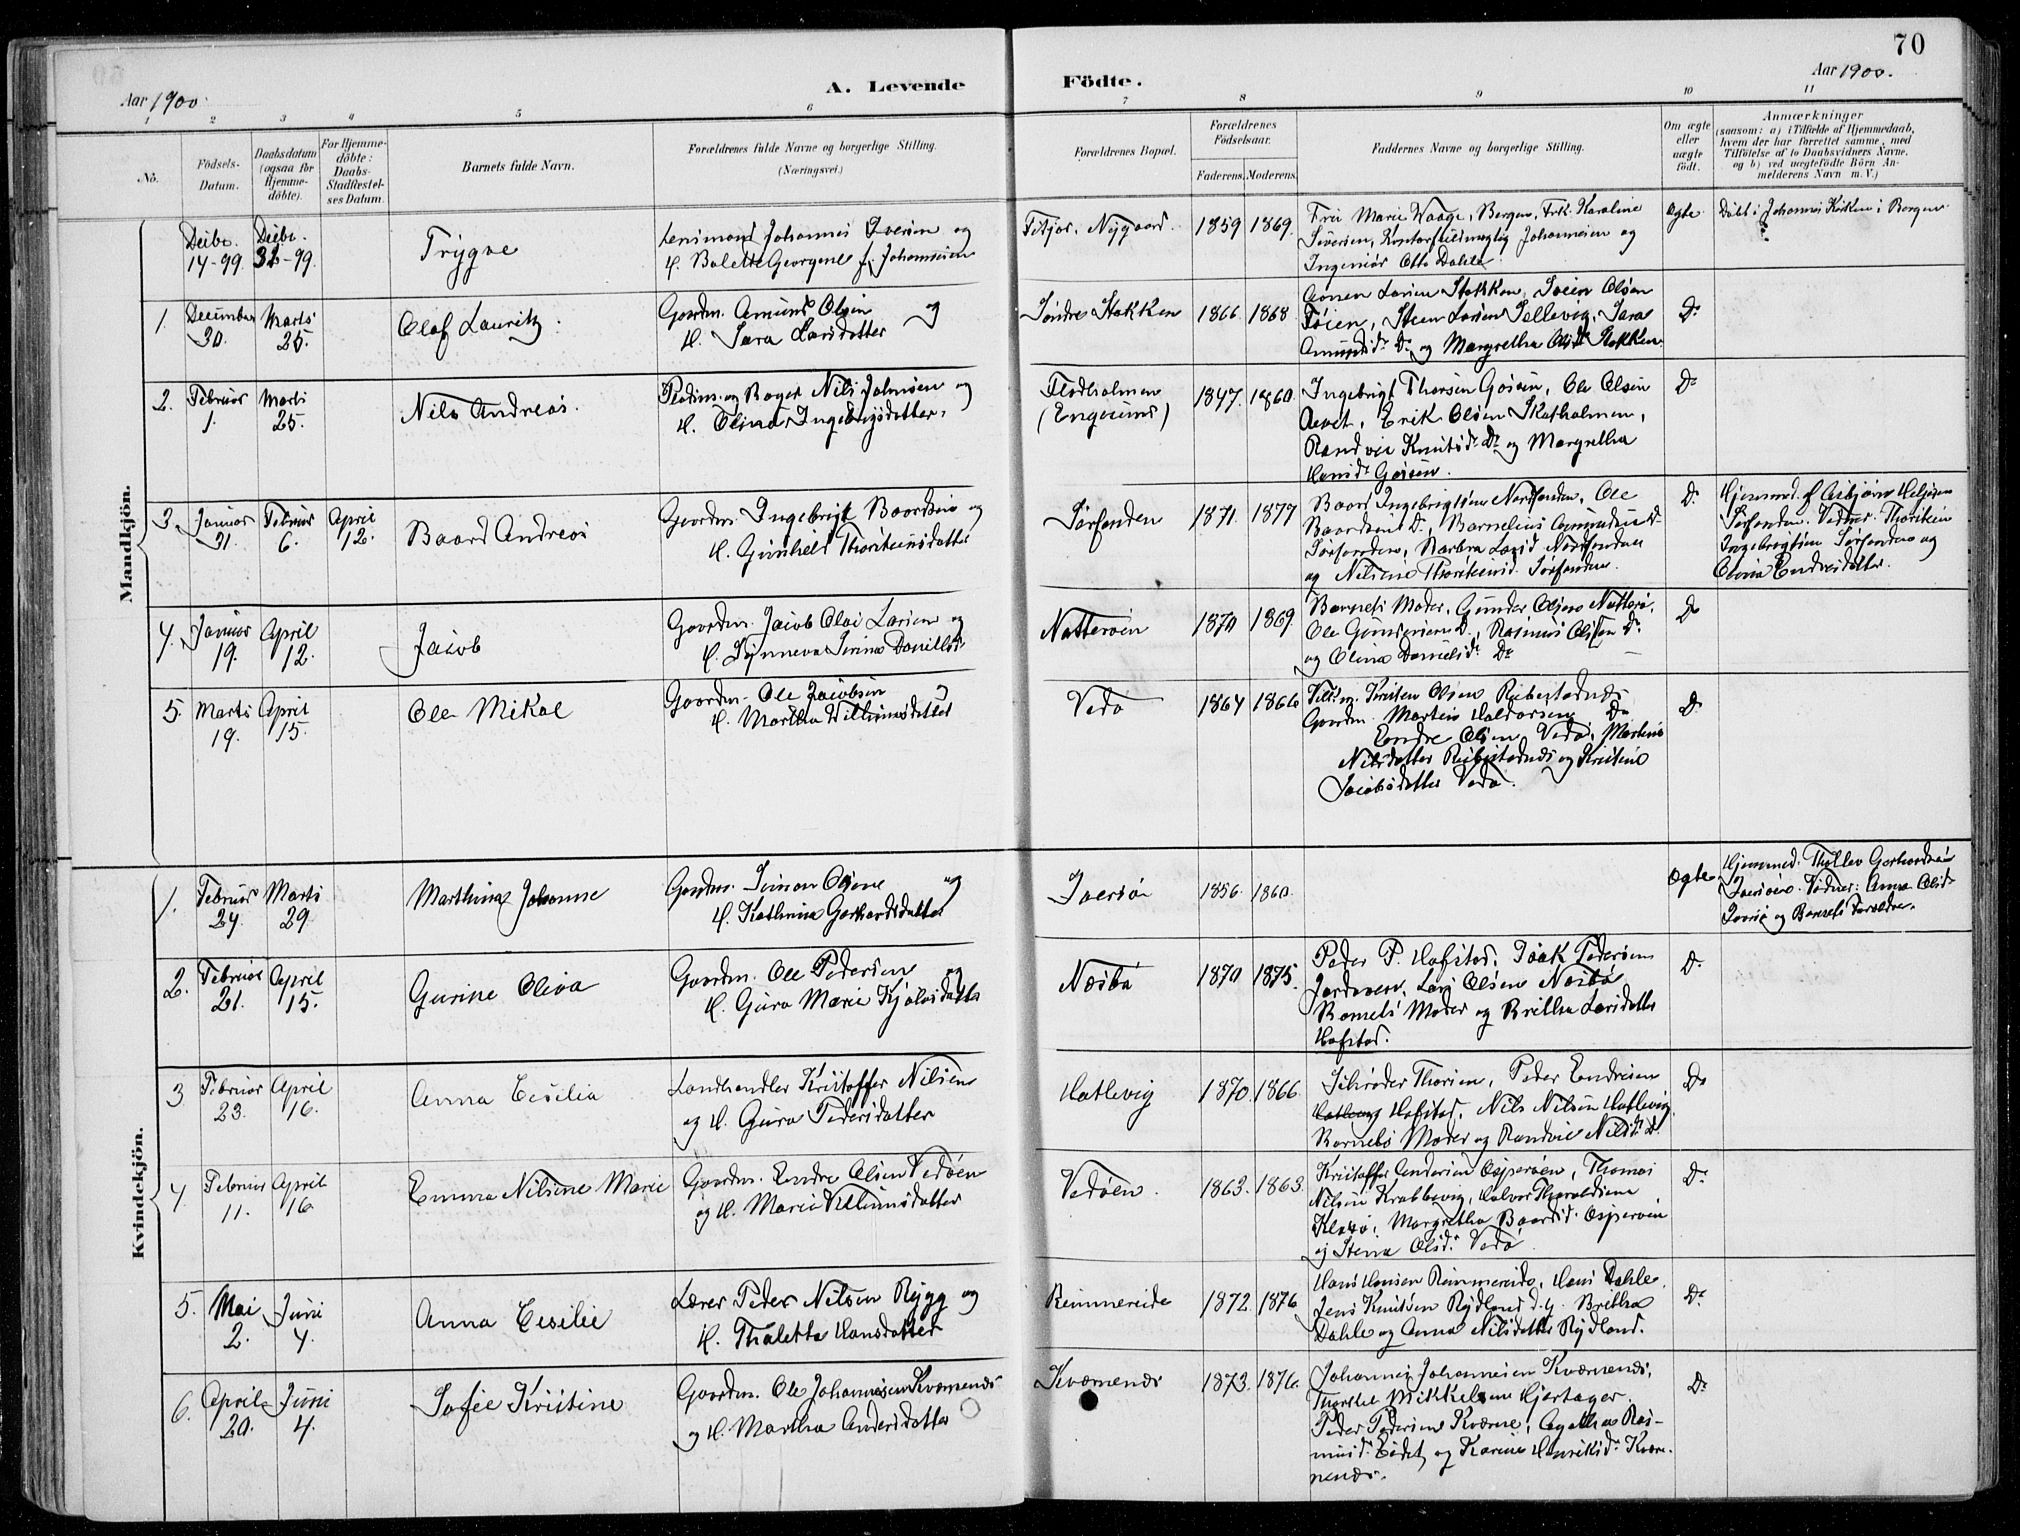 70
Aar 1900.
A. Levende Födte.
Aar 1900.
1 2 3 4 5 6 7 8 9 10 11
No.
Födsels-Datum.
Daabsdatum (ogsaa for Hjemme-döbte).
For Hjemme-döbte: Daabs-Stadfæstel-ses Datum.
Barnets fulde Navn.
Forældrenes fulde Navne og borgerlige Stilling. (Næringsvei.)
Forældrenes Bopæl.
Forældrenes Födselsaar.
Faderens. Moderens.
Faddernes Navne og borgerlige Stilling.
Om ægte eller uægte födt.
Anmærkninger
(saasom: a) i Tilfælde af Hjemmedaab,
hvem der har forrettet samme, med
Tilföielse af to Daabsvidners Navne.
og b) ved uægtefödte Börn An-
melderens Navn m. V.)
Mandkjön.
Decbr. 14-99. Decbr. 31-99.
Trygve
Lensmand Johannes Sverien og
H. Bolette Georgine f. Johannesen
Fitjar, Nygaard. 1859 1869.
Fru Marie Waage, Bergen, Frk. Karoline
Johannesen og
Ingeniör Otto Dahle
Ægte
Döbt i Johannes Kirken i Bergen
1. December 30. Marts 25.
Olaf Lauritz.
Gaardm. Amund Olsen og
H. Sara Larsdatter
Söndre Stokken 1866 1868
Larsen Stokken, Olsen
Steen Larsen Sellevig, Sara
Amundsdr. Do og Margretha Olsdr Stokken
Do
2. Februar 1. Marts 25.
Nils Andreas.
Nils Johnsen og
H. Olina Ingebrigtsdatter.
Flodholmen
(Engesund)
1847. 1860.
Ingebrigt Thorsen Gåsön, Ole Olsen
Aavet, Erik Olsen Skatholmen,
Randvei Knutsdr. Do og Margretha
Hansdr Gåsön.
Do
3. Januar 31. Februar 6. April 12.
Baard Andreas
Gaardm. Ingebrigt Baardsen og
H. Gunhild Thorsteinsdatter
Sörfonden 1871. 1877
Baard Ingebrigtsen Nordfonden, Ole
Baardsen Do, Bornelius Amundsen Do
Sörfonden, Barbra Larsd. Nordfonden
og Nilsine Thorsteinsd. Sörfonden.
Do
Hjemmed. af Asbjörn Helgesen
Sörfonden. Vidner: Thorstein
Ingebrigtsen Sörfonden og
Olivia Endresdatter.
4. Januar 19. April 12.
Jacob
Gaardm. Jacob Olai Larsen og
H. Synneva Serina Danielsd.
Natteröen 1870 1869.
Barnets Moder, Gunder Olsen Natterö,
Ole Gundersen Do, Rasmus Olsen Do
og Olina Danielsdr Do
Do
5. Marts 19. April 15.
Ole Mikal
Gaardm. Ole Jacobsen og
H. Martha Villumsdatter
Vedö 1864 1866
Kristen Olsen Rubbestadnæs
Gaardm. Martin Haldorsen Do
Endre Olsen Vedö, Martine
Nilsdatter Rubbestadnæs og Kristine
Jacobsdatter Vedö.
Do
Kvindekjön.
1. Februar 24. Marts 29.
Marthina Johanne
Gaardm. Simon Olsen og
H. Kathrina Gerhardsdatter
Iversön 1856. 1860.
Ægte
Hjemmed. Thollev Gerhardsen
Iversöen. Vidner: Anna Olsd.
og Barnets Forældre.
2. Februar 21. April 15.
Gurine Oliva
Gaardm. Ole Pedersen og
H. Gura Marie Kjælsdatter
Næsbö 1870 1875.
Peder P. Hafstad, Isak Pedersen
Jordaasen, Lars Olsen Næsbö
Barnets Moder og Britha Larsdatter
Hafstad.
Do
3 Februar 23. April 16.
Anna Cecilia
Landhandler Kristoffer Nilsen
og H. Gura Pedersdatter
Hatlevig 1870. 1866.
Schröder Thorsen, Peder Endresen
Hafstad, Nils Nilsen Hatlevig,
Barnets Moder og Randvei Nilsdr. Do
Do
4. Februar 11. April 16.
Emma Nilsine Marie
Gaardm. Endre Olsen Vedöen
og H. Maria Villumsdatter
Vedöen. 1863. 1863
Kristoffer Andersen Osperöen, Thomas
Nilsen Krabbevig, Halvor Thoraldsen
Margretha Baardsd. Osperöen
og Stena Olsdr. Vedö
Do
5. Mai 2. Juni 4.
Anna Cesilie
Lærer Peder Nilsen Rygg og
H. Thaletta Hansdatter
Remmereide 1872. 1876
Hans Hansen Remmereide, Hans Dahle,
Jens Knutsen Rydland d.y. Britha
Dahle og Anna Nilsdatter Rydland.
Do
6. April 20. Juni 4.
Sofie Kristine
Gaardm. Ole Johannesen Kværnenæs
og H. Martha Andersdatter
Kværnenæs 1873. 1876.
Johannes Johannesen Kværnenæs,
Mikkelsen Hjertager
Peder Pedersen Kværne, Agatha Ras-
musd. og Karine Henriksdr. Kvær-
nenæs.
Do